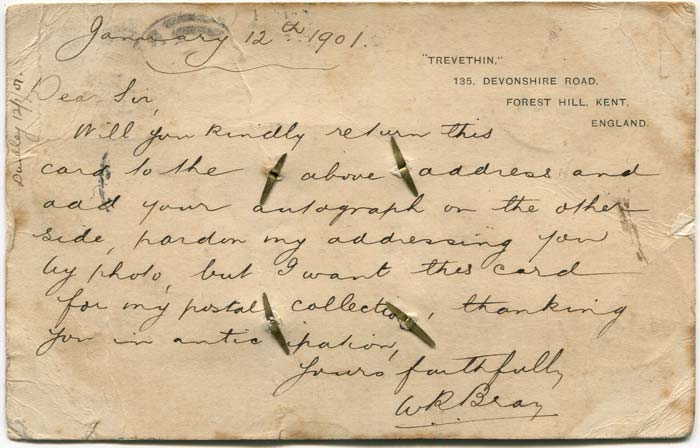 January 12th 1901.
"TREVETHIN,"
135. DEVONSHIRE ROAD.
FOREST HILL. KENT.
ENGLAND.
Dear Sir,
Will you kindly return this
card to the above address and
add your autograph on the other
side, pardon my addressing you
by photo, but I want this card
for my postal collection, thanking
you in anticipation,
Yours faithfully
W R Bray
12/1/01.